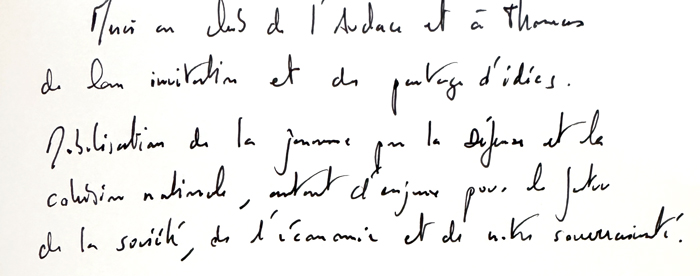 Merci au club de l'Audace et à Thomas
de leur invitation et du partage d'idées.
Mobilisation de la jeunesse pour la Défense et la
cohésion nationale, autant d'enjeux pour le futur
de la société, de l'économie et de notre souveraineté.